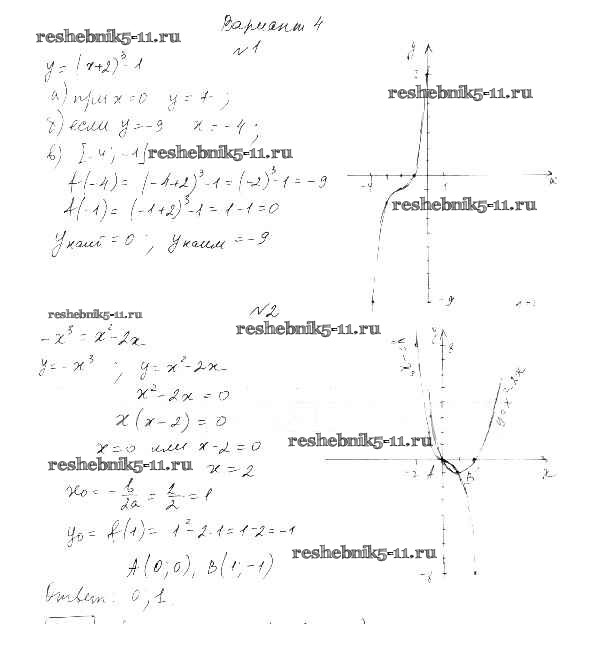 Вариант 4
reshebnik5-11.ru
№1
y = (x+2)³-1
а) при x=0 y=7;
б) если y=-9 x=-4;
в) [-4; -1]
reshebnik5-11.ru
f(-4) = (-4+2)³-1 = (-2)³-1 = -9
f(-1) = (-1+2)³-1 = 1-1 = 0
yнаиб = 0; yнаим = -9
y
reshebnik5-11.ru
-4
1
x
reshebnik5-11.ru
-9
№2
reshebnik5-11.ru
reshebnik5-11.ru
-x³ = x²-2x
y = -x³; y = x²-2x
x²-2x = 0
x(x-2) = 0
x=0 или x-2=0
reshebnik5-11.ru
x = 2
x₀ = -b/2a = 2/2 = 1
y₀ = f(1) = 1²-2·1 = 1-2 = -1
A(0;0), B(1;-1)
Ответ: 0, 1.
8
y=x²-2x
reshebnik5-11.ru
-2
A
B
x
reshebnik5-11.ru
-8